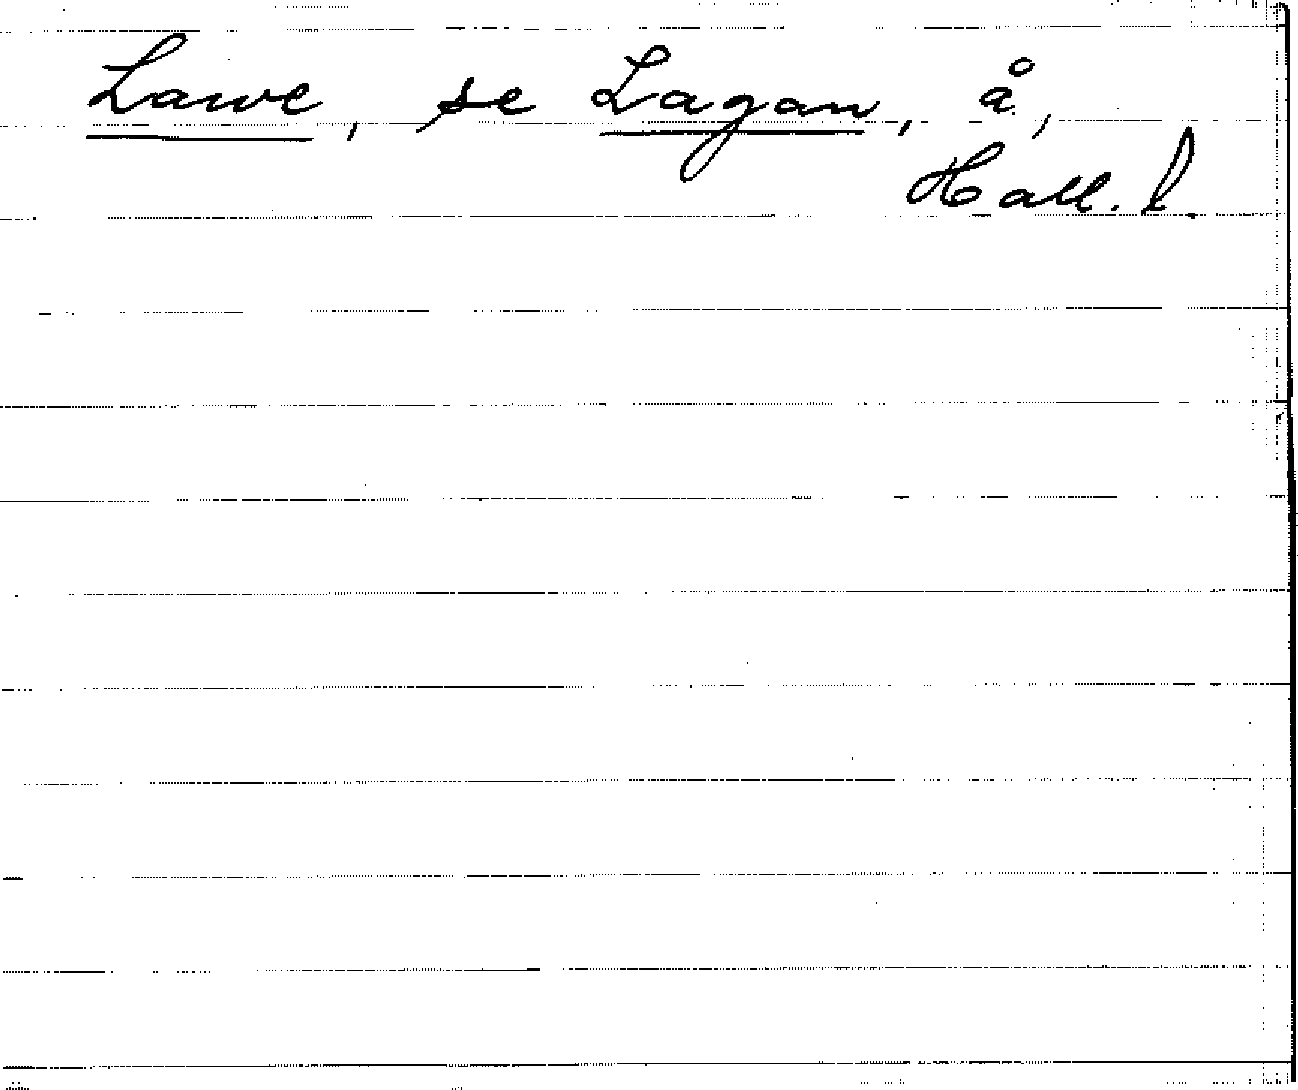 Lawe, se Lagan, å,
Hall. l.